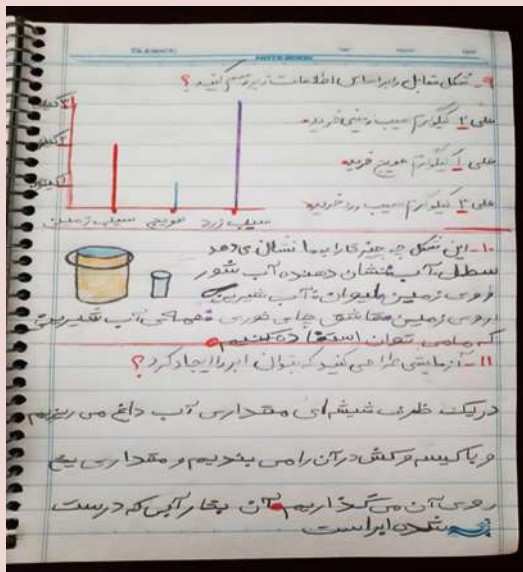 NOTE BOOK
۹- شکل مقابل را براساس اطلاعات زیر رسم کنید؟
علی ۲ کیلوگرم سیب زمینی خرید.
علی ۱ کیلوگرم هویج خرید.
علی ۳ کیلوگرم سیب زرد خرید.
سیب زمینی هویج سیب زرد
۱۰- این شکل چه چیزی را به ما نشان می دهد
سطل آب نشان دهنده آب شور
روی زمین لیوان آب شیرین
روی زمین قاشق چای خوری همه ی آب شیرینی
که ما می توان استفاده کنیم.
۱۱- آزمایشی طراحی کنید که بتوان ابر را ایجاد کرد؟
در یک ظرف شیشه ای مقداری آب داغ می ریزیم
و با کیسه و کش در آن را می بندیم و مقداری یخ
روی آن می گذاریم. آن بخار آبی که درست
شده ابر است